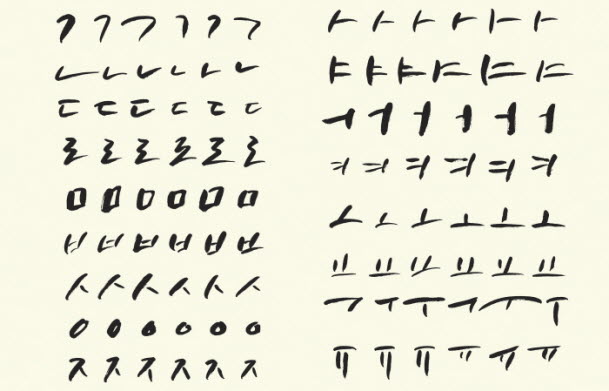 ㄱ ㄱ ㄱ ㄱ ㄱ ㄱ
ㄴ ㄴ ㄴ ㄴ ㄴ ㄴ
ㄷ ㄷ ㄷ ㄷ ㄷ ㄷ
ㄹ ㄹ ㄹ ㄹ ㄹ ㄹ
ㅁ ㅁ ㅁ ㅁ ㅁ ㅁ
ㅂ ㅂ ㅂ ㅂ ㅂ ㅂ
ㅅ ㅅ ㅅ ㅅ ㅅ ㅅ
ㅇ ㅇ ㅇ ㅇ ㅇ ㅇ
ㅈ ㅈ ㅈ ㅈ ㅈ ㅈ
ㅏ ㅏ ㅏ ㅏ ㅏ ㅏ
ㅑ ㅑ ㅑ ㅑ ㅑ ㅑ
ㅓ ㅓ ㅓ ㅓ ㅓ ㅓ
ㅕ ㅕ ㅕ ㅕ ㅕ ㅕ
ㅗ ㅗ ㅗ ㅗ ㅗ ㅗ
ㅛ ㅛ ㅛ ㅛ ㅛ ㅛ
ㅜ ㅜ ㅜ ㅜ ㅜ ㅜ
ㅠ ㅠ ㅠ ㅠ ㅠ ㅠ